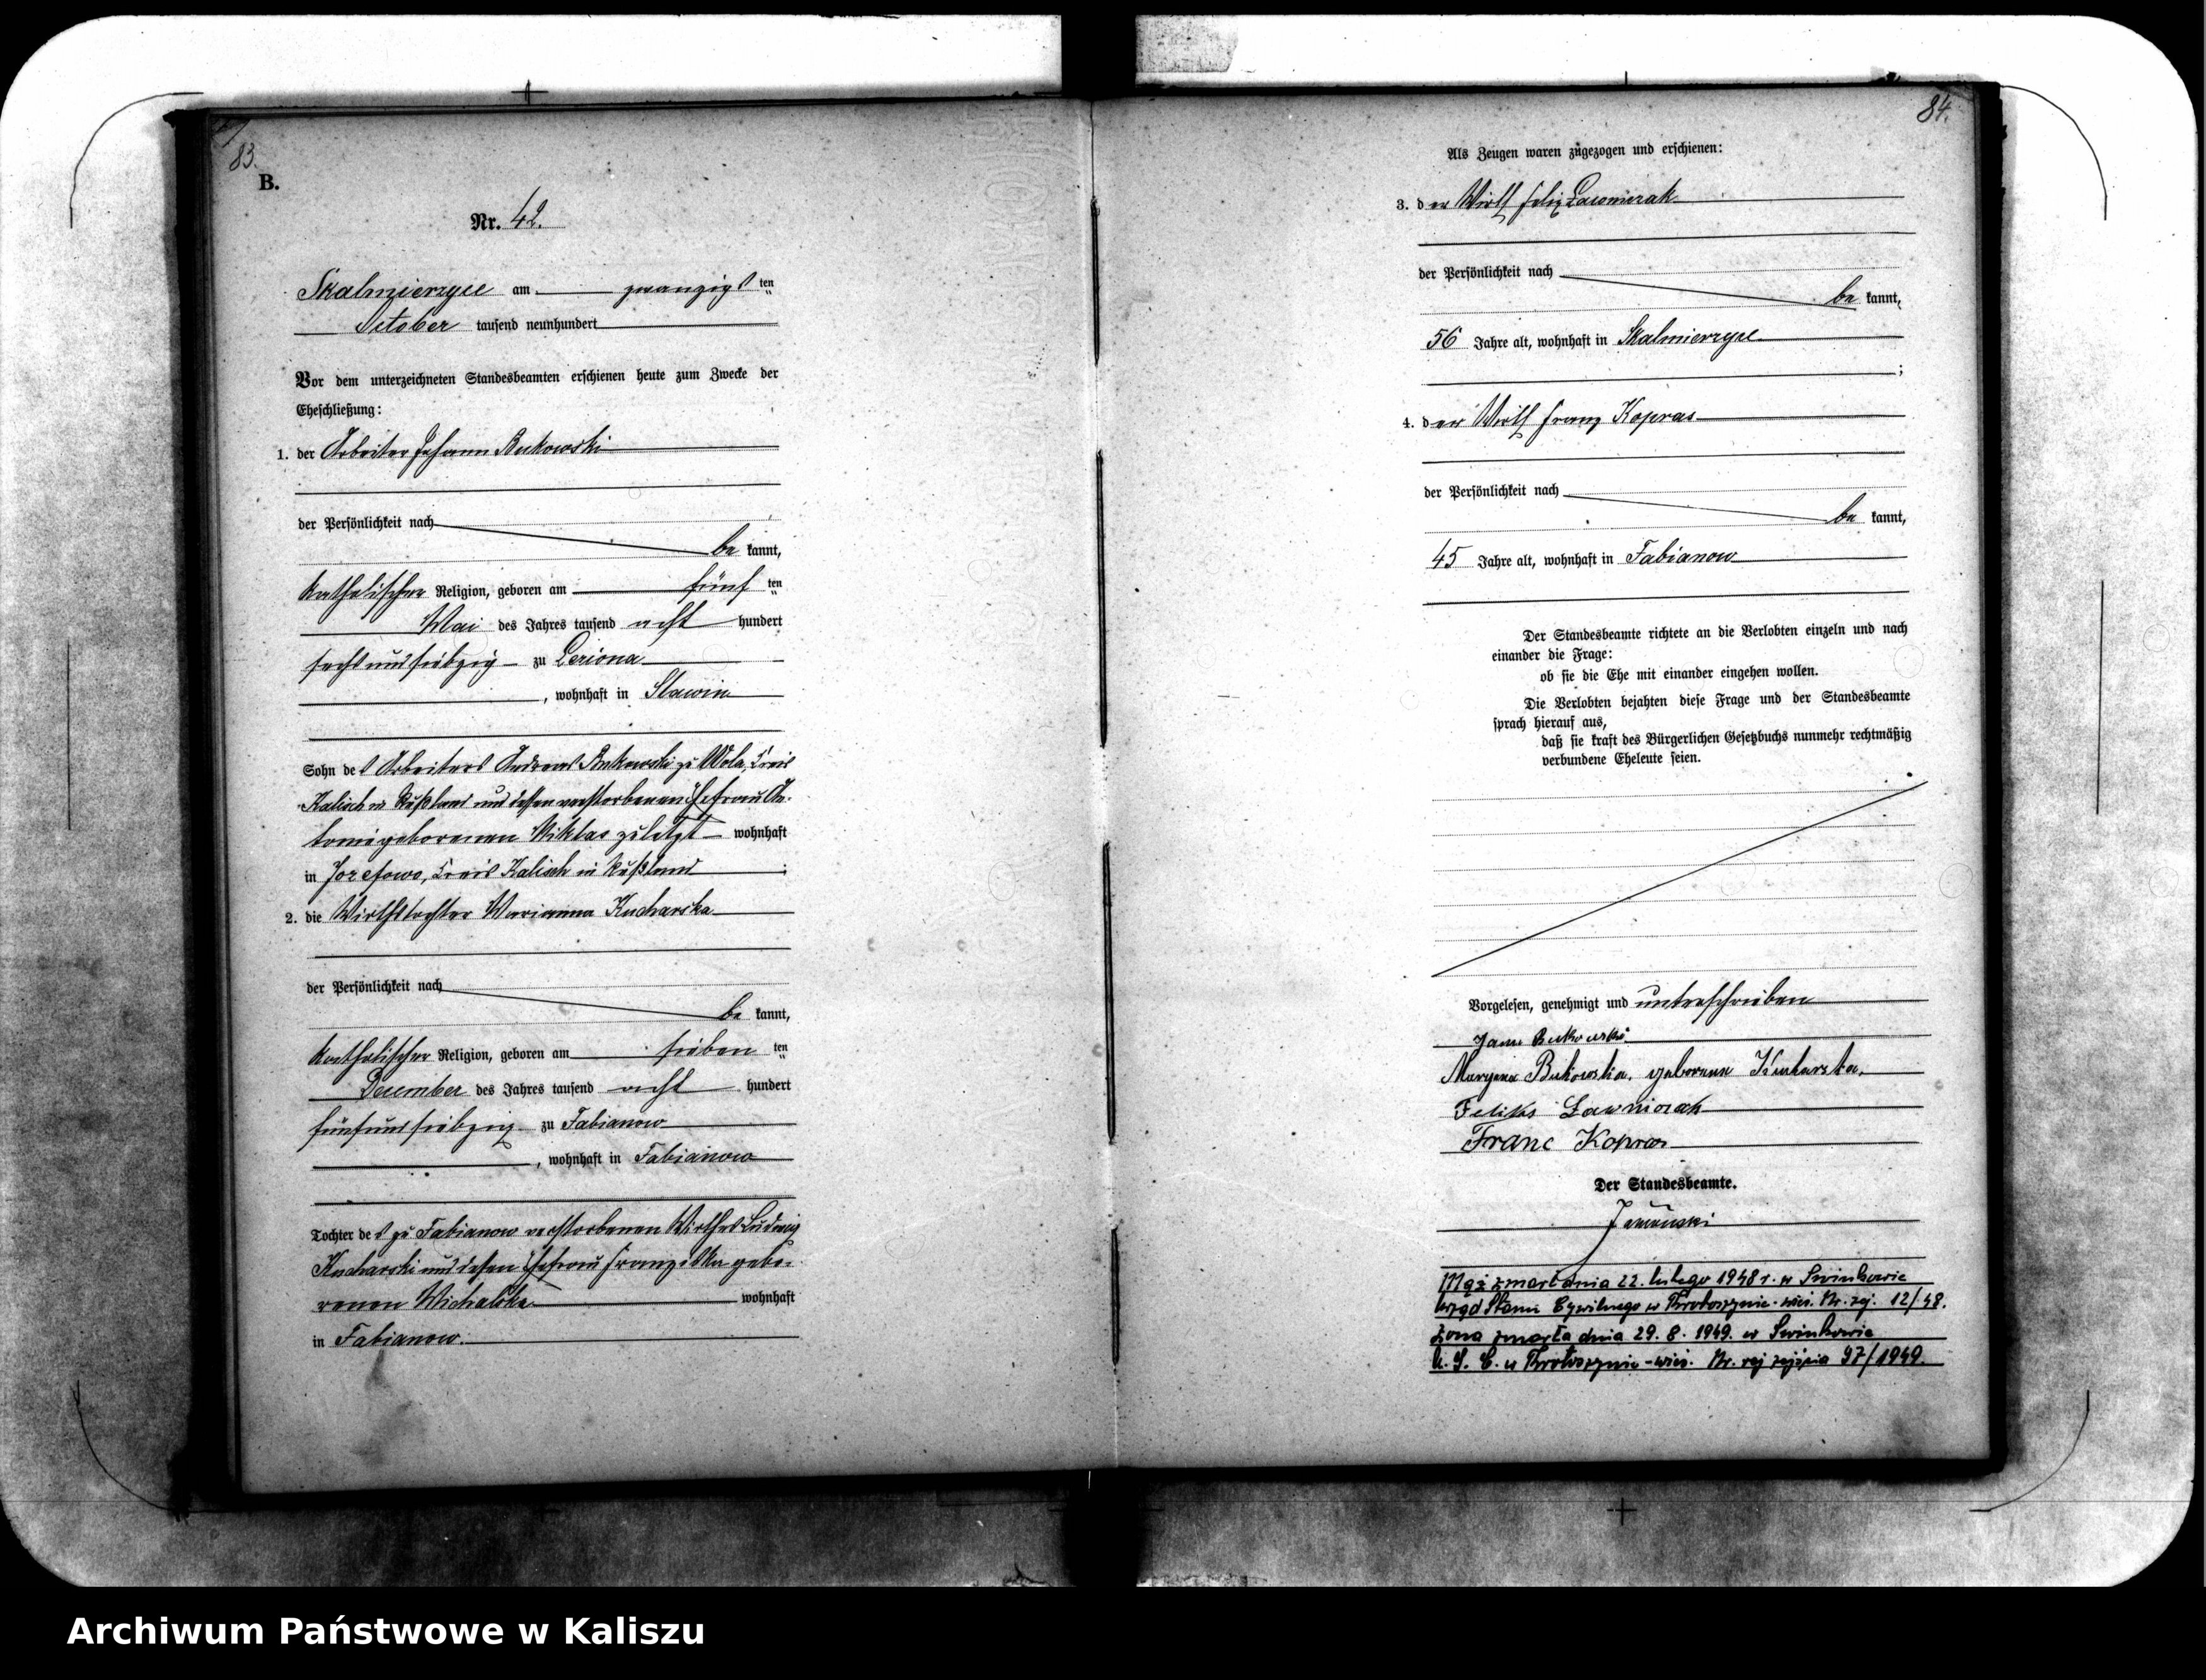 83.
B.
Nr. 42.
Skalmierzyce am zwanzigsten
October tausend neunhundert
Vor dem unterzeichneten Standesbeamten erschienen heute zum Zwecke der
Eheschließung:
1. der Arbeiter Johann Bukowski
der Persönlichkeit nach
bekannt,
katholischer Religion, geboren am fünften
Mai des Jahres tausend acht hundert
sechsundsiebzig zu Leziona
, wohnhaft in Slawin
Sohn des Arbeiters Andreas Bukowski zu Wola, Kreis
Kalisch in Rußland und dessen verstorbenen Ehefrau An-
tonie geborenen Miklas zuletzt wohnhaft
in Jozefowo, Kreis Kalisch in Rußland ;
2. die Wirthstochter Marianna Kucharska
der Persönlichkeit nach
bekannt,
katholischer Religion, geboren am siebenten
December des Jahres tausend acht hundert
fünfundsiebzig zu Fabianow
, wohnhaft in Fabianow
Tochter des zu Fabianow verstorbenen Wirthes Ludwig
Kucharski und dessen Ehefrau Franziska gebo-
renen Michalska wohnhaft
in Fabianow.
84.
Als Zeugen waren zugezogen und erschienen:
3. der Wirth Felix Lawniczak
der Persönlichkeit nach
bekannt,
56 Jahre alt, wohnhaft in Skalmierzyce
;
4. der Wirth Franz Kopras
der Persönlichkeit nach
bekannt,
45 Jahre alt, wohnhaft in Fabianow
Der Standesbeamte richtete an die Verlobten einzeln und nach
einander die Frage:
ob sie die Ehe mit einander eingehen wollen.
Die Verlobten bejahten diese Frage und der Standesbeamte
sprach hierauf aus,
daß sie kraft des Bürgerlichen Gesetzbuchs nunmehr rechtmäßig
verbundene Eheleute seien.
Vorgelesen, genehmigt und unterschrieben
Jann Bukowski
Maryana Bukowska, geborene Kucharska.
Feliks Ławniczak
Franc Kopras
Der Standesbeamte.
Mąż zmarł dnia 22. lutego 1948 r. w Swinkowie
Urząd Stanu Cywilnego w Krotoszynie-wieś. Nr. rej. 12/48.
żona zmarła dnia 29. 8. 1949. w Swinkowie
U. S. C. w Krotoszynie-wieś. Nr. rej zejścia 97/1949.
Archiwum Państwowe w Kaliszu